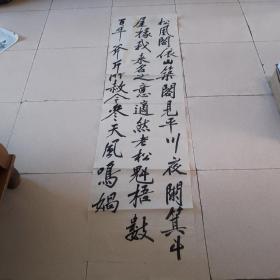 松風閣依山築閣見平川夜闌箕斗
屋椽我来名之意適然老松魁梧數
百年斧斤所赦今參天風鳴媧